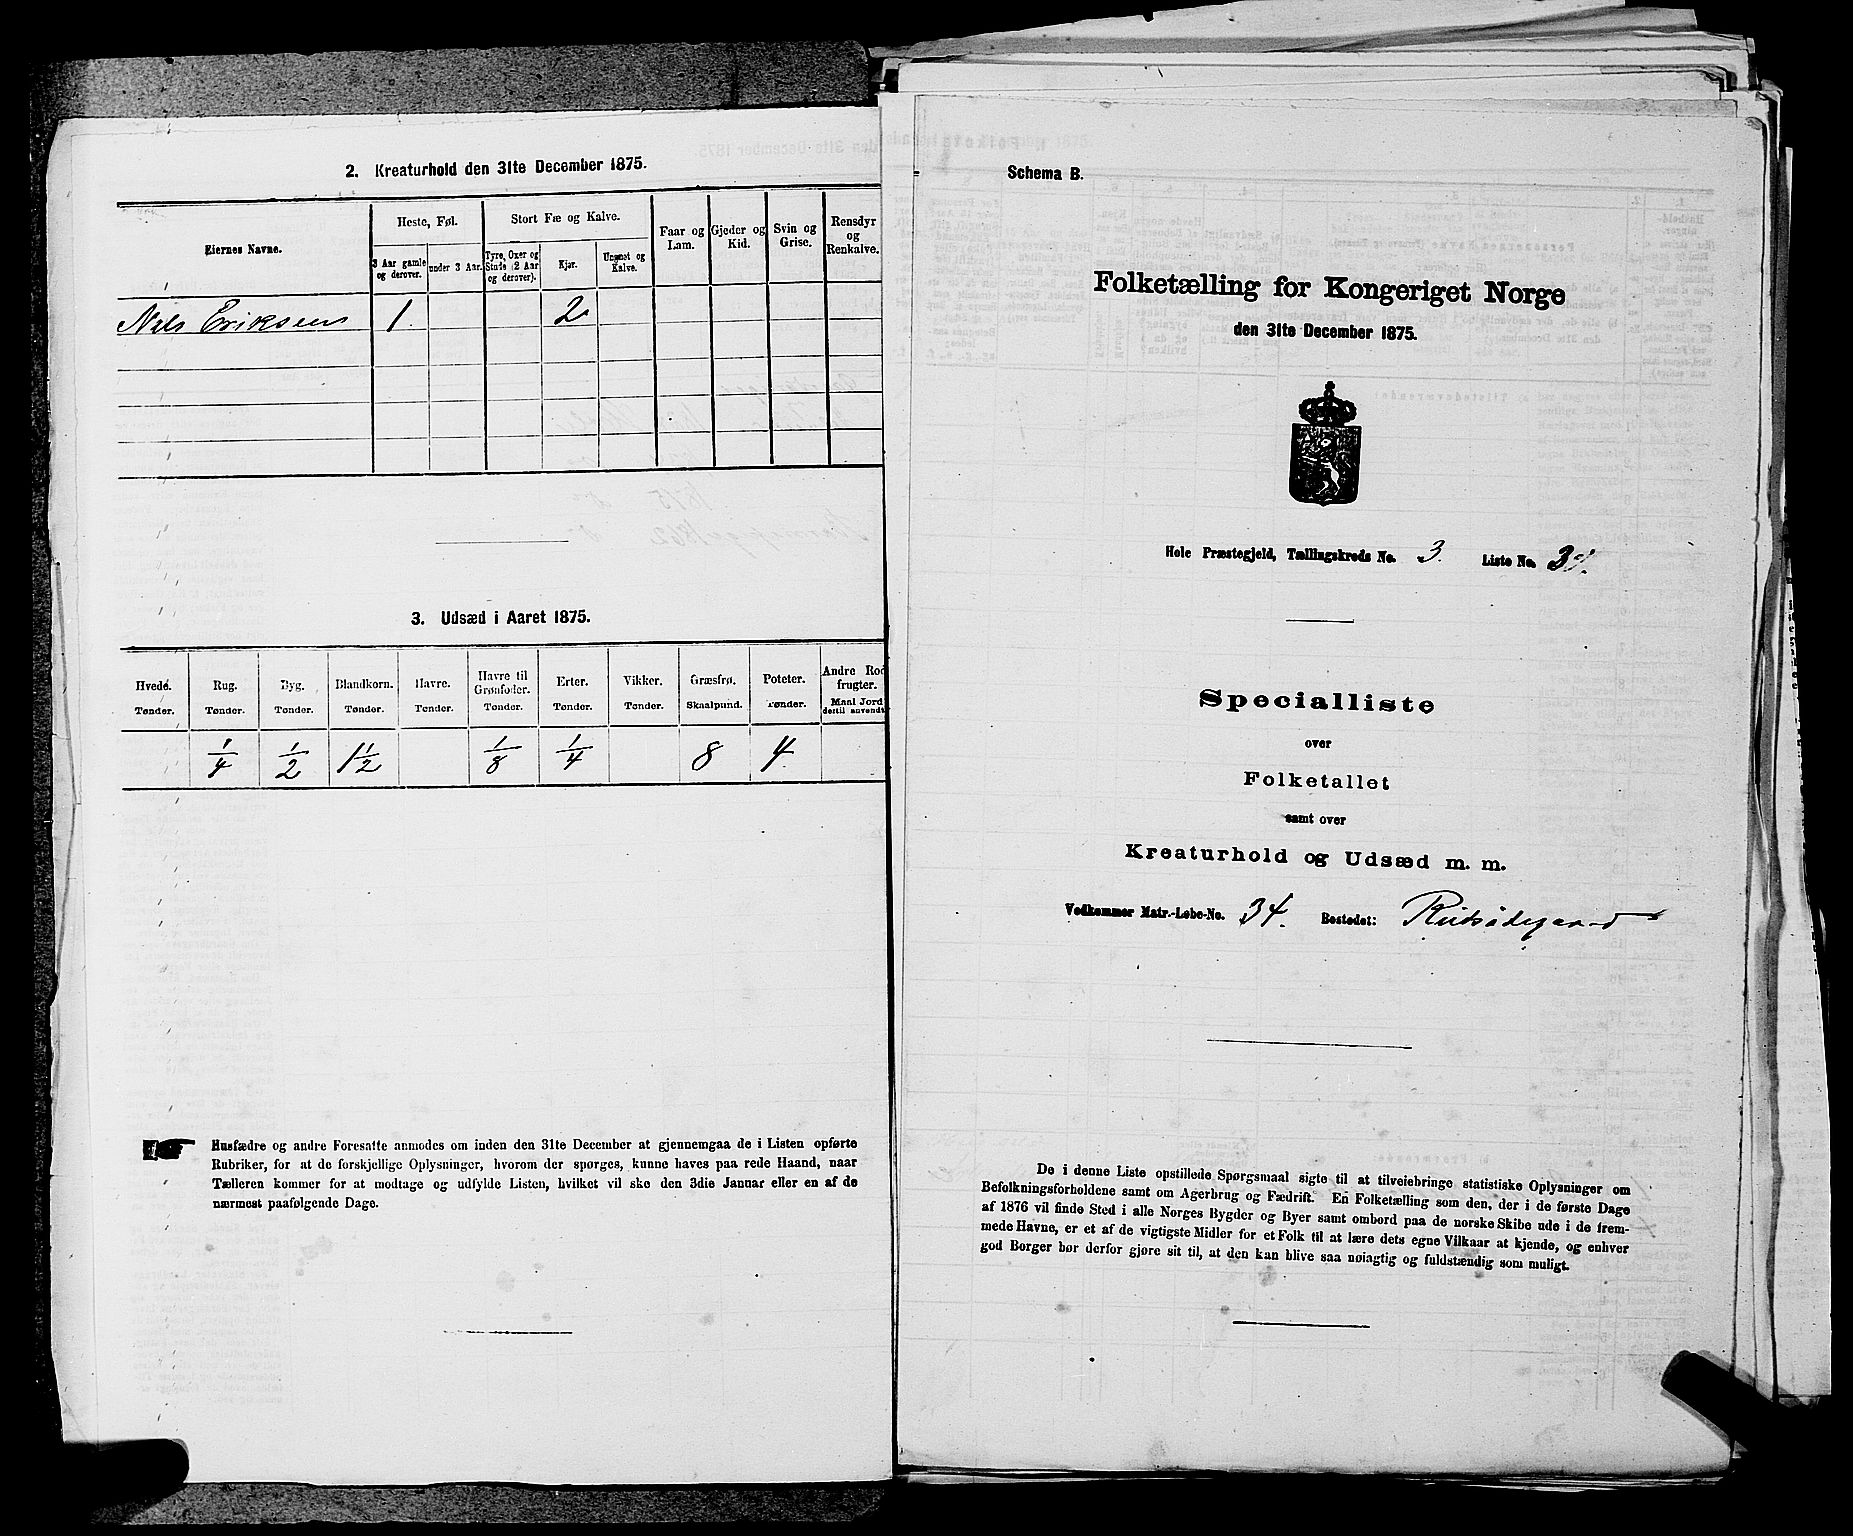 2. Kreaturhold den 31te December 1875.
Eiernes Navne.
Heste, Føl.
3 Aar gamle og derover.
under 3 Aar.
Stort Fæ og Kalve.
Tyre, Oxer og Stude (2 Aar og derover).
Kjør.
Ungnøt og Kalve.
Faar og Lam.
Gjeder og Kid.
Svin og Grise.
Rensdyr og Renkalve.
Nils Eriksen 1 2
3. Udsæd i Aaret 1875.
Hvede. Rug. Byg. Blandkorn. Havre. Havre til Grønfoder. Erter. Vikker. Græsfrø. Poteter. Andre Rodfrugter.
Tønder. Tønder. Tønder. Tønder. Tønder. Tønder. Tønder. Tønder. Skaalpund. Tønder. Maal Jord dertil anvendt
1/4 1/2 1 1/2 1/8 1/4 8 4
Husfædre og andre Foresatte anmodes om inden den 31te December at gjennemgaa de i Listen opførte
Rubriker, for at de forskjellige Oplysninger, hvorom der spørges, kunne haves paa rede Haand, naar
Tælleren kommer for at modtage og udfylde Listen, hvilket vil ske den 3die Januar eller en af de
nærmest paafølgende Dage.
Schema B.
Folketælling for Kongeriget Norge
den 31te December 1875.
Hole Præstegjeld, Tællingskreds No. 3. Liste No.
Specialliste
over
Folketallet
samt over
Kreaturhold og Udsæd m. m.
Vedkommer Matr.-Løbe-No. 34. Bostedet:
De i denne Liste opstillede Spørgsmaal sigte til at tilveiebringe statistiske Oplysninger om
Befolkningsforholdene samt om Agerbrug og Fædrift. En Folketælling som den, der i de første Dage
af 1876 vil finde Sted i alle Norges Bygder og Byer samt ombord paa de norske Skibe ude i de frem-
mede Havne, er et af de vigtigste Midler for et Folk til at lære dets egne Vilkaar at kjende, og enhver
god Borger bør derfor gjøre sit til, at den kan blive saa nøiagtig og fuldstændig som muligt.